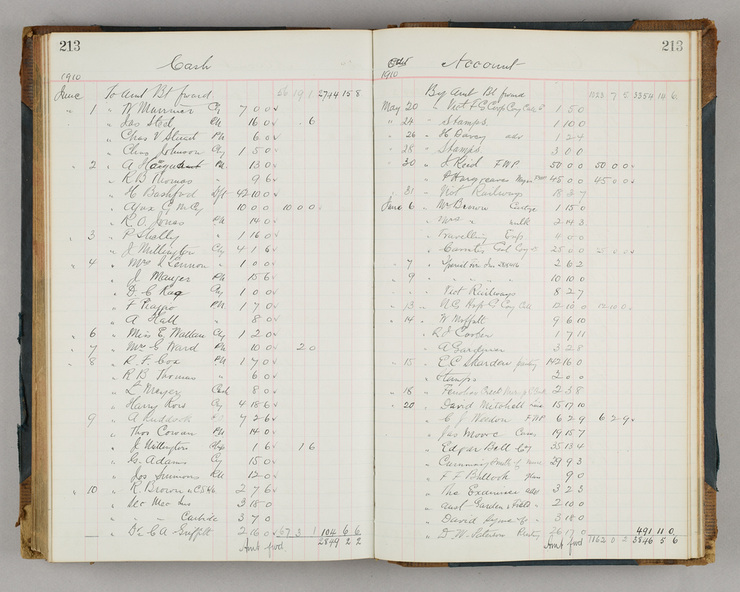 213
Cash
1910
June To Amt Bt forwd 2744 15 8
" 1 " W Marriner Cy 7 0 0
" Jas Sted Ph 16 0 6
" Chas V Stued Ph 6 0
" Chas Johnson Cy 1 5 0
" 2 " A Ph 13 0
" R B Thomas " 9 6
" H Bashford Dft 42 10 0
" Ajax C M Cy 10 0 0 10 0 0
" R. O. Jonas Ph 14 0
" 3 " P Skelly " 1 16 0
" J Millington Cy 4 1 6
" 4 " Mrs Lennon " 1 0 0
" J. Mauger Ph 15 6
" D. C Kag Cy 1 0 0
" F Ph 1 7 0
" A Hall " 8 0
" 6 " Miss E, Wallace Cy 1 2 0
" 7 " Mrs E Ward Ph 10 0 2 0
" 8 " R F Cox Ph 1 7 0
" R B Thomas " 6 0
" L Mayer Cash 8 0
" Harry Ross Cy 4 18 6
9 " A Ruddock 7 2 6
" Thos Cowan Ph 14 0
" J Millington 1 6 1 6
" G. Adams Cy 15 0
" Jos Simmons 12 0
" 10 " R. Brown 2 7 6
" 3 18 0
" " Carbide 3 7 0
" Dr C A Griffith 2 16 0 67 3 1 104 6 6
Amt fwd 2849 2 2
213
Account
1910
By Amt Bt forwd 1123 7 5 3354 14 6
May 20 " 1 5 0
" 24 " Stamps 1 10 0
" 26 " H Davey 1 2 4
" 28 " Stamps 3 0 0
" 30 " J Reid FWP 50 0 0 50 0 0
" Hargreaves 45 0 0 45 0 0
" 31 " Vict Railways 18 3 7
June 6 " Mr Brown 1 15 0
" " milk 2 14 3
" Travelling Exp 4 0 0
" 25 0 0 25 0 0
" 7 " 2 6 2
" 9 " " 10 10 0
" Vict Railways 8 2 7
" 13 " 12 10 0 12 10 0
" 14 " W Moffatt 9 6 10
" R J Cooler 1 7 11
" A Gardener 3 2 8
" 15 " E. C. 142 16 0
" Stamps 2 0 0
" 18 " Creek 2 3 8
" 20 " David Mitchell 15 17 10
" C J Weedon FWP 6 2 9 6 2 9
" Jas Moore 19 15 7
" Edgar Bell 35 13 4
" 29 9 3
" F F Bullock 9 0
" The Examiner 3 2 3
" East Garden & Field 2 10 0
" David Syme & Co 3 18 0
" D. W. Paterson 26 17 0 491 11 0
Amt fwd 1162 0 2 3846 5 6